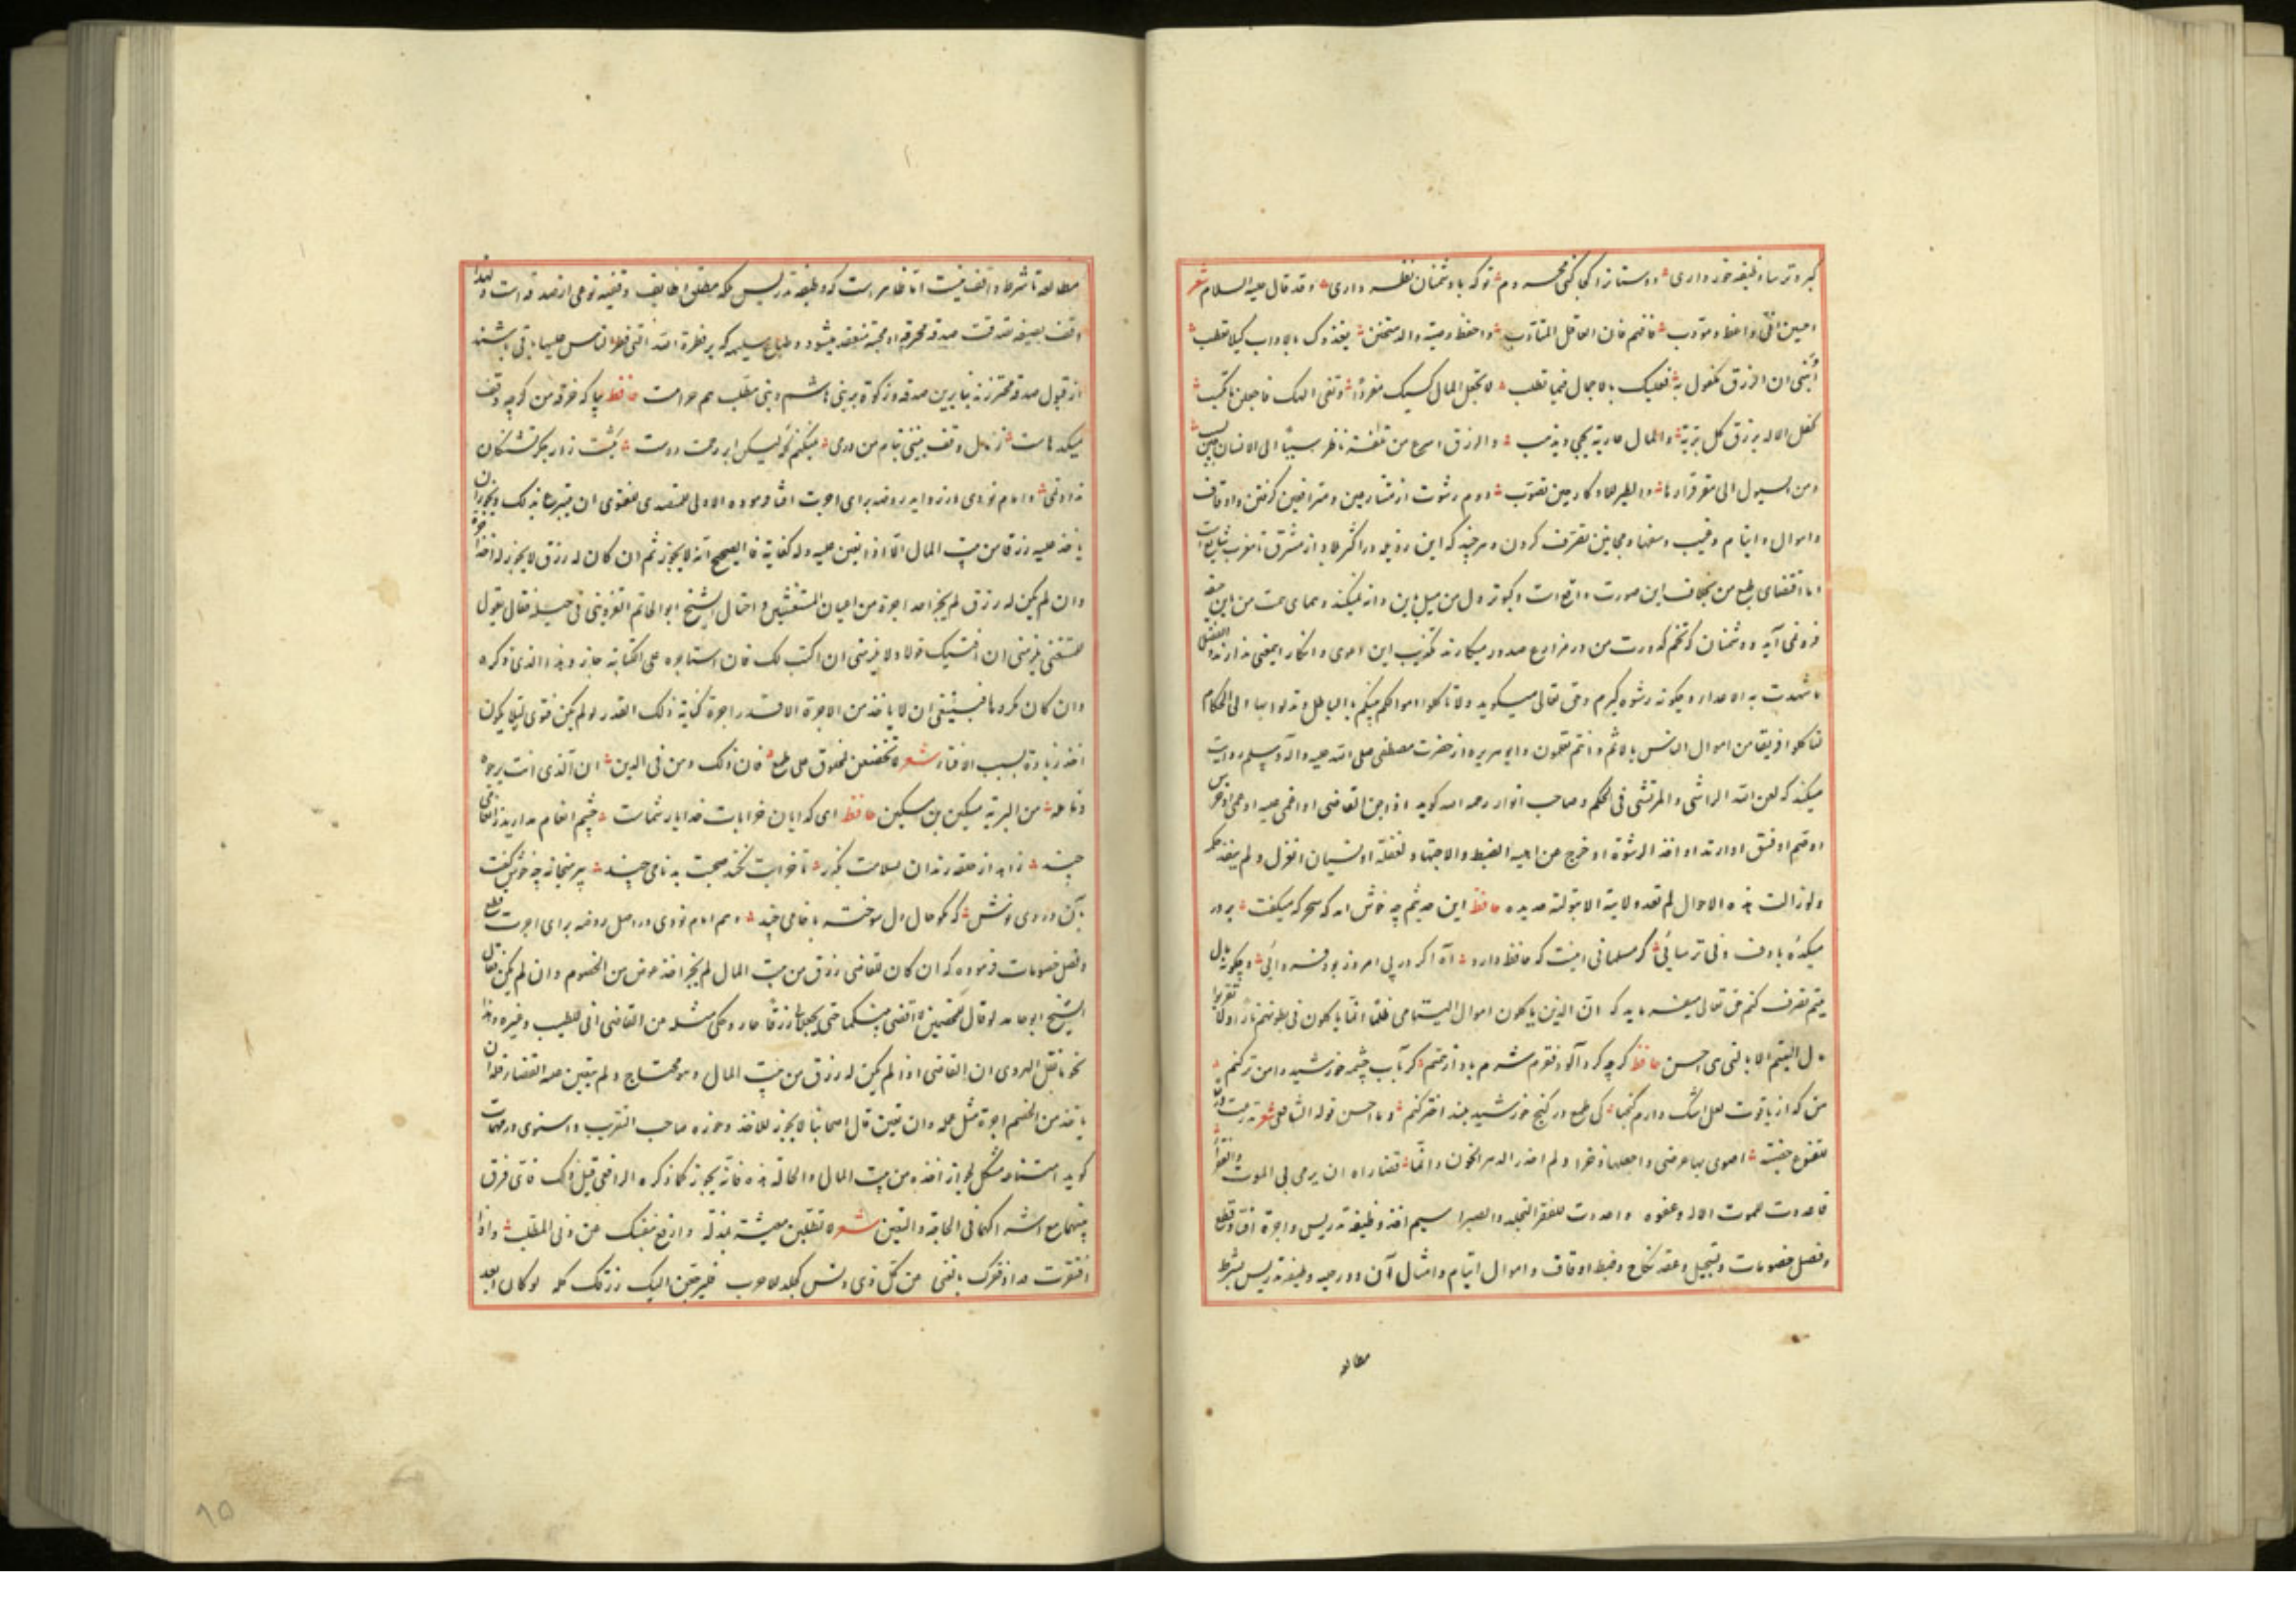 کبر و ترسا وظیفه خور داری دوستانرا کجا کنی محروم تو که با دشمنان نظر داری و قد قال علیه السلام شعر
احسین انی واعظ و مؤدب فافهم فان العاقل المتأدب واحفظ وصیة والد متحنن یغذوک بالاداب کیلا تعطب
أبنی ان الرزق مکفول به فعلیک بالاجمال فیما تطلب لا تجعل المال کسبک مفردا وتقی الهک فاجعلن ما تکسب
کفل الاله برزق کل بریة والمال عاریة تجی وتذهب والرزق اسرع من تلفت ناظر سببا الی الانسان حین یسبب
ومن السیول الی مقر قرارها والطیر للاوکار حین تصوب دوم رشوت از متشارعین و مترافعین گرفتن و اوقاف
و اموال و ایتام و غیب و سفها و مجانین تصرف کردن و هرچند که این رویه در اکثر بلاد از مشرق تا مغرب شایع است
اما اقتضای طبع من بخلاف این صورت واقع است و کبوتر دل من میل باین دانه نمیکند و همای همت من باین جیفه
فرو نمی آید و دشمنان که تخم کدورت من در مزارع صدور میکارند تکذیب این دعوی و انکار اینمعنی ندارند والفضل
ما شهدت به الاعداء و چگونه رشوه گیرم و حق تعالی میگوید ولا تأکلوا اموالکم بینکم بالباطل وتدلوا بها الی الحکام
لتأکلوا فریقا من اموال الناس بالاثم وانتم تعلمون و ابو هریره از حضرت مصطفی صلی الله علیه وآله وسلم روایت
میکند که لعن الله الراشی والمرتشی فی الحکم و صاحب انوار رحمه الله گوید اذا جن القاضی او اغمی علیه او عمی او خرس
او صم او فسق او ارتد او اخذ الرشوة او خرج عن اهلیة الضبط والاجتهاد لغفلة او نسیان انعزل ولم ینفذ حکمه
ولو زالت هذه الاحوال لم تعد ولایته الا بتولیة جدیده حافظ این حدیثم چه خوش امد که سحر که میگفت بر در
میکده با دف و نی ترسائی گر مسلمانی اینست که حافظ دارد آه اگر در پی امروز بود فردائی و چگونه بمال
یتیم تصرف کنم حق تعالی میفرماید که ان الذین یأکلون اموال الیتامی ظلما انما یأکلون فی بطونهم نارا ولا تقربوا
مال الیتیم الا بالتی هی احسن حافظ گرچه گردآلود فقرم شرم باد از همتم گر بآب چشمه خورشید دامن تر کنم
من که از یاقوت لعل اشک دارم گنجها کی طمع در گنج خورشید بلند اختر کنم و ما احسن قوله الشافعی شعر تدرعت
للقنوع حصینة اصون بها عرضی واجعلها ذخرا ولم احذر الدهر الخؤن وانما قصاراه ان یرمی بی الموت والفقرا
فاعددت للموت الاله وعفوه واعددت للفقر التجلد والصبرا سیم اخذ وظیفه تدریس و اجرة افتا و قطع
و فصل خصومات و تسجیل و عقد نکاح و ضبط اوقاف و اموال ایتام و امثال آن و در حیه وظیفه تدریس بشرط
مطالعه
مطالعه تا شرط واقف نیست اما ظاهر است که وظیفه تدریس بلکه مطلق وظایف وقفیه نوعی از صدقه است و لهذا
وقف بصیغه تصدقت صدقة محرمة او محبسة منعقد میشود و طباع سلیمه که بر فطرة الله التی فطر الناس علیها باقی باشند
از قبول صدقه محترزند بنابرین صدقه و زکوة بر بنی هاشم و بنی مطلب هم حرامست حافظ بیا که خرقه من گرچه وقف
میکدهاست ز مال وقف نبینی بنام من درمی میکنم که لیکن ابر رحمت دوست بکشت زار جگر تشنگان
نداد نمی و امام نووی در زواید روضه برای اجرت افتا فرموده الاولی للمتصدی للفتوی ان یتبرع بذلک ویجوز ان
یاخذ علیه رزقا من بیت المال الا اذا تعین علیه وله کفایة فالصحیح انه لا یجوز ثم ان کان له رزق لا یجوز له اخذ اجرة
وان لم یکن له رزق لم یجز اخذ اجرة من اعیان المستفتین واحتال الشیخ ابو الحاتم القزوینی فی حیله فقال یقول
للمستفتی یلزمنی ان افتیک قولا ولا یلزمنی ان اکتب لک فان استاجره علی الکتابة جاز وهذا الذی ذکره
وان کان مکروها فینبغی ان لا یاخذ من الاجرة الا قدر اجرة کتابة ذلک القدر لو لم یکن فتوی لئلا یکون
اخذ زیادة بسبب الافتاء شعر لا تخضعن لمخلوق علی طمع فان ذلک وهن فی الدین ان الذی انت یرجوه
وتامله من البریة مسکین بن مسکین حافظ ای گدایان خرابات خدا یار شماست چشم انعام مدارید ز انعامی
چند زاهد از حلقه رندان بسلامت بگذر تا خرابت نکند صحبت بدنامی چند پیر میخانه چه خوش گفت
بآن دردی نوش که مگو حال دل سوخته با خامی چند و هم امام نووی در اصل روضه برای اجرت قطع
و فصل خصومات فرموده که ان کان للقاضی رزق من بیت المال لم یجز اخذ عوض من الخصوم وان لم یکن فقال
الشیخ ابو حامد لو قال للخصمین لا اقضی بینکما حتی تجعلا لی رزقا جاز وحکی مثله عن القاضی ابی الطیب وغیره وهذا
نحو ما نقل الهروی ان القاضی اذا لم یکن له رزق من بیت المال وهو محتاج ولم یتعین علیه القضاء فله ان
یاخذ من الخصم اجرة مثل عمله وان تعین قال اصحابنا لا یجوز للاخذ وجوزه صاحب التقریب و اسنوی در مهمات
گوید استثناء مشکل لجواز اخذه من بیت المال والحالة هذه فانه یجوز کما ذکره الرافعی قبل ذلک فای فرق
بینهما مع اشتراکهما فی الحاجة والتعین شعر لا تطلبن معیشة بمذلة وارفع بنفسک عن دنی المطلب واذا
افتقرت فداو فقرک بالغنی عن کل ذی دنس کجلد الاجرب فلیرجعن الیک رزقک کله لو کان ابعد
۹۵